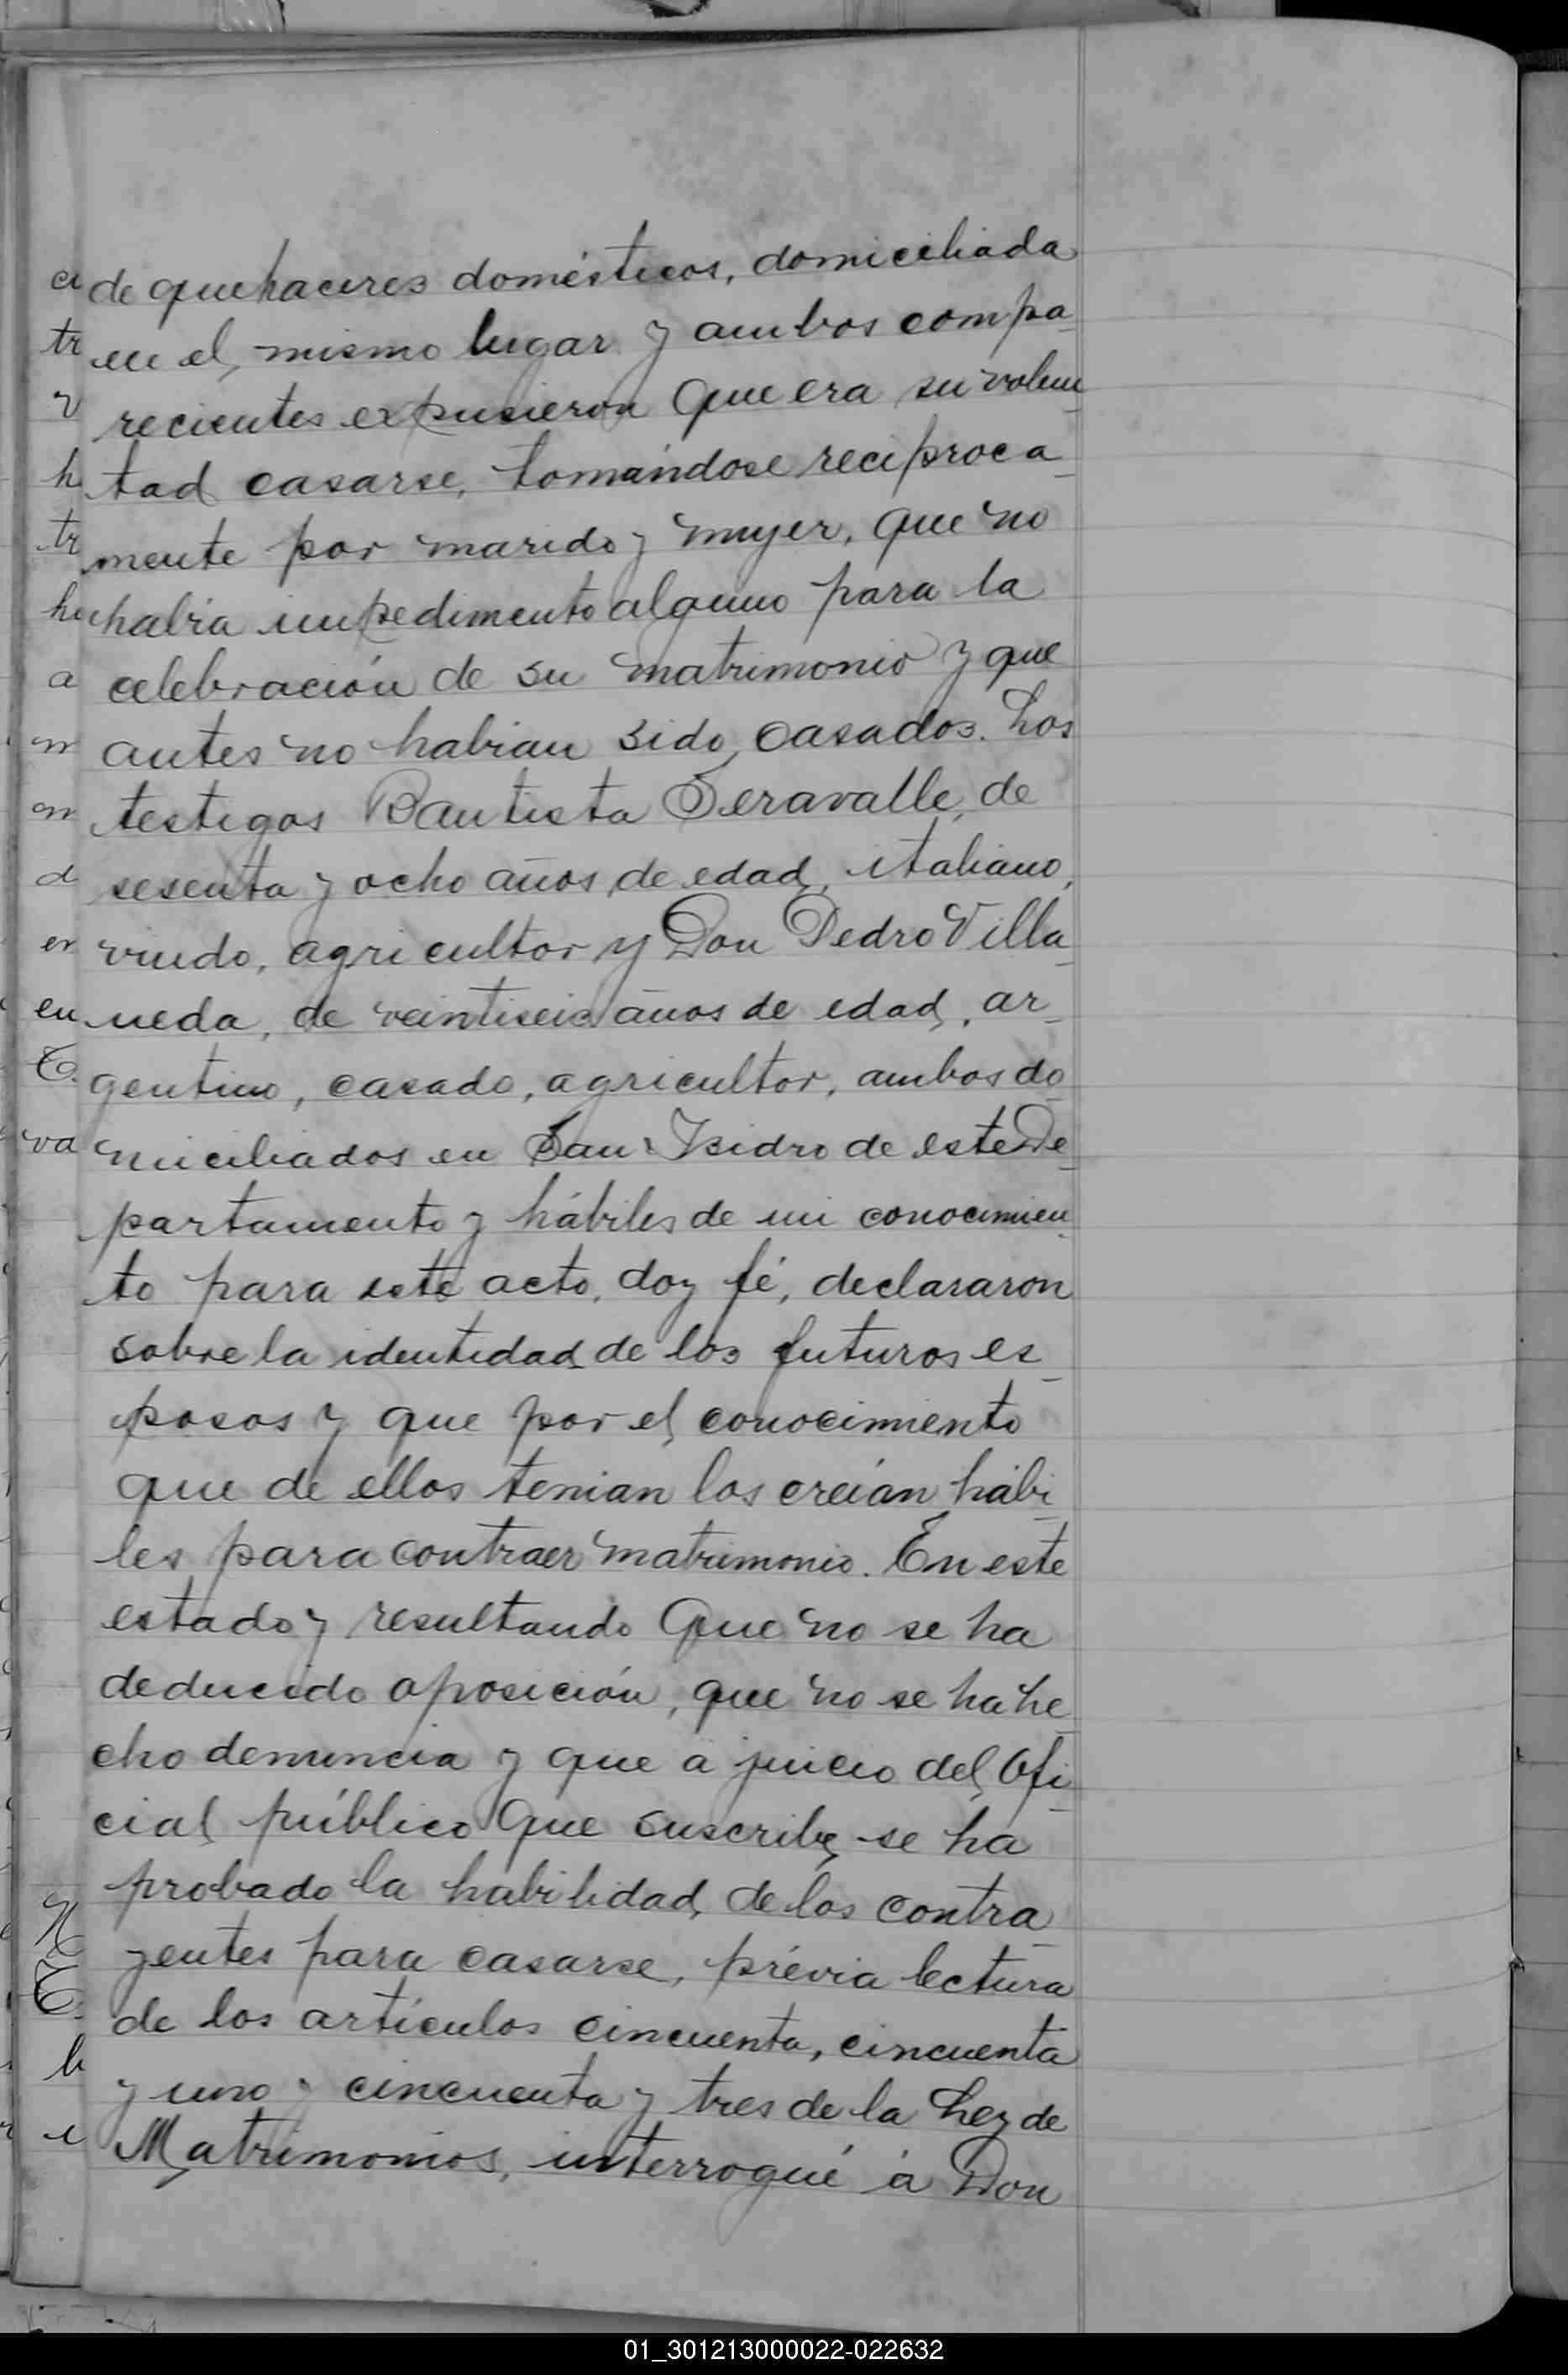 de quehaceres domésticos, domiciliada
en el mismo lugar y ambos compa-
recientes expusieron que era su volun-
tad casarse, tomándose reciproca-
mente por marido y mujer, que no
habia impedimento alguno para la
celebración de su matrimonio y que
antes no habian sido casados. Los
testigos Bautista Seravalle, de
sesenta y ocho años de edad, italiano,
viudo, agricultor y Don Pedro Villa-
neda, de veintiseis años de edad, ar-
gentino, casado, agricultor, ambos do-
miciliados en San Isidro de este De-
partamento y hábiles de mi conocimien-
to para este acto, doy fé, declararon
sobre la identidad de los futuros es-
posos y que por el conocimiento
que de ellos tenian los creían hábi-
les para contraer matrimonio. En este
estado y resultando que no se ha
deducido oposición, que no se ha he-
cho denuncia y que a juicio del Ofi-
cial público que suscribe se ha
probado la habilidad de los contra-
yentes para casarse, prévia lectura
de los artículos cincuenta, cincuenta
y uno y cincuenta y tres de la Ley de
Matrimonios, interrogué á Don
01_301213000022-022632